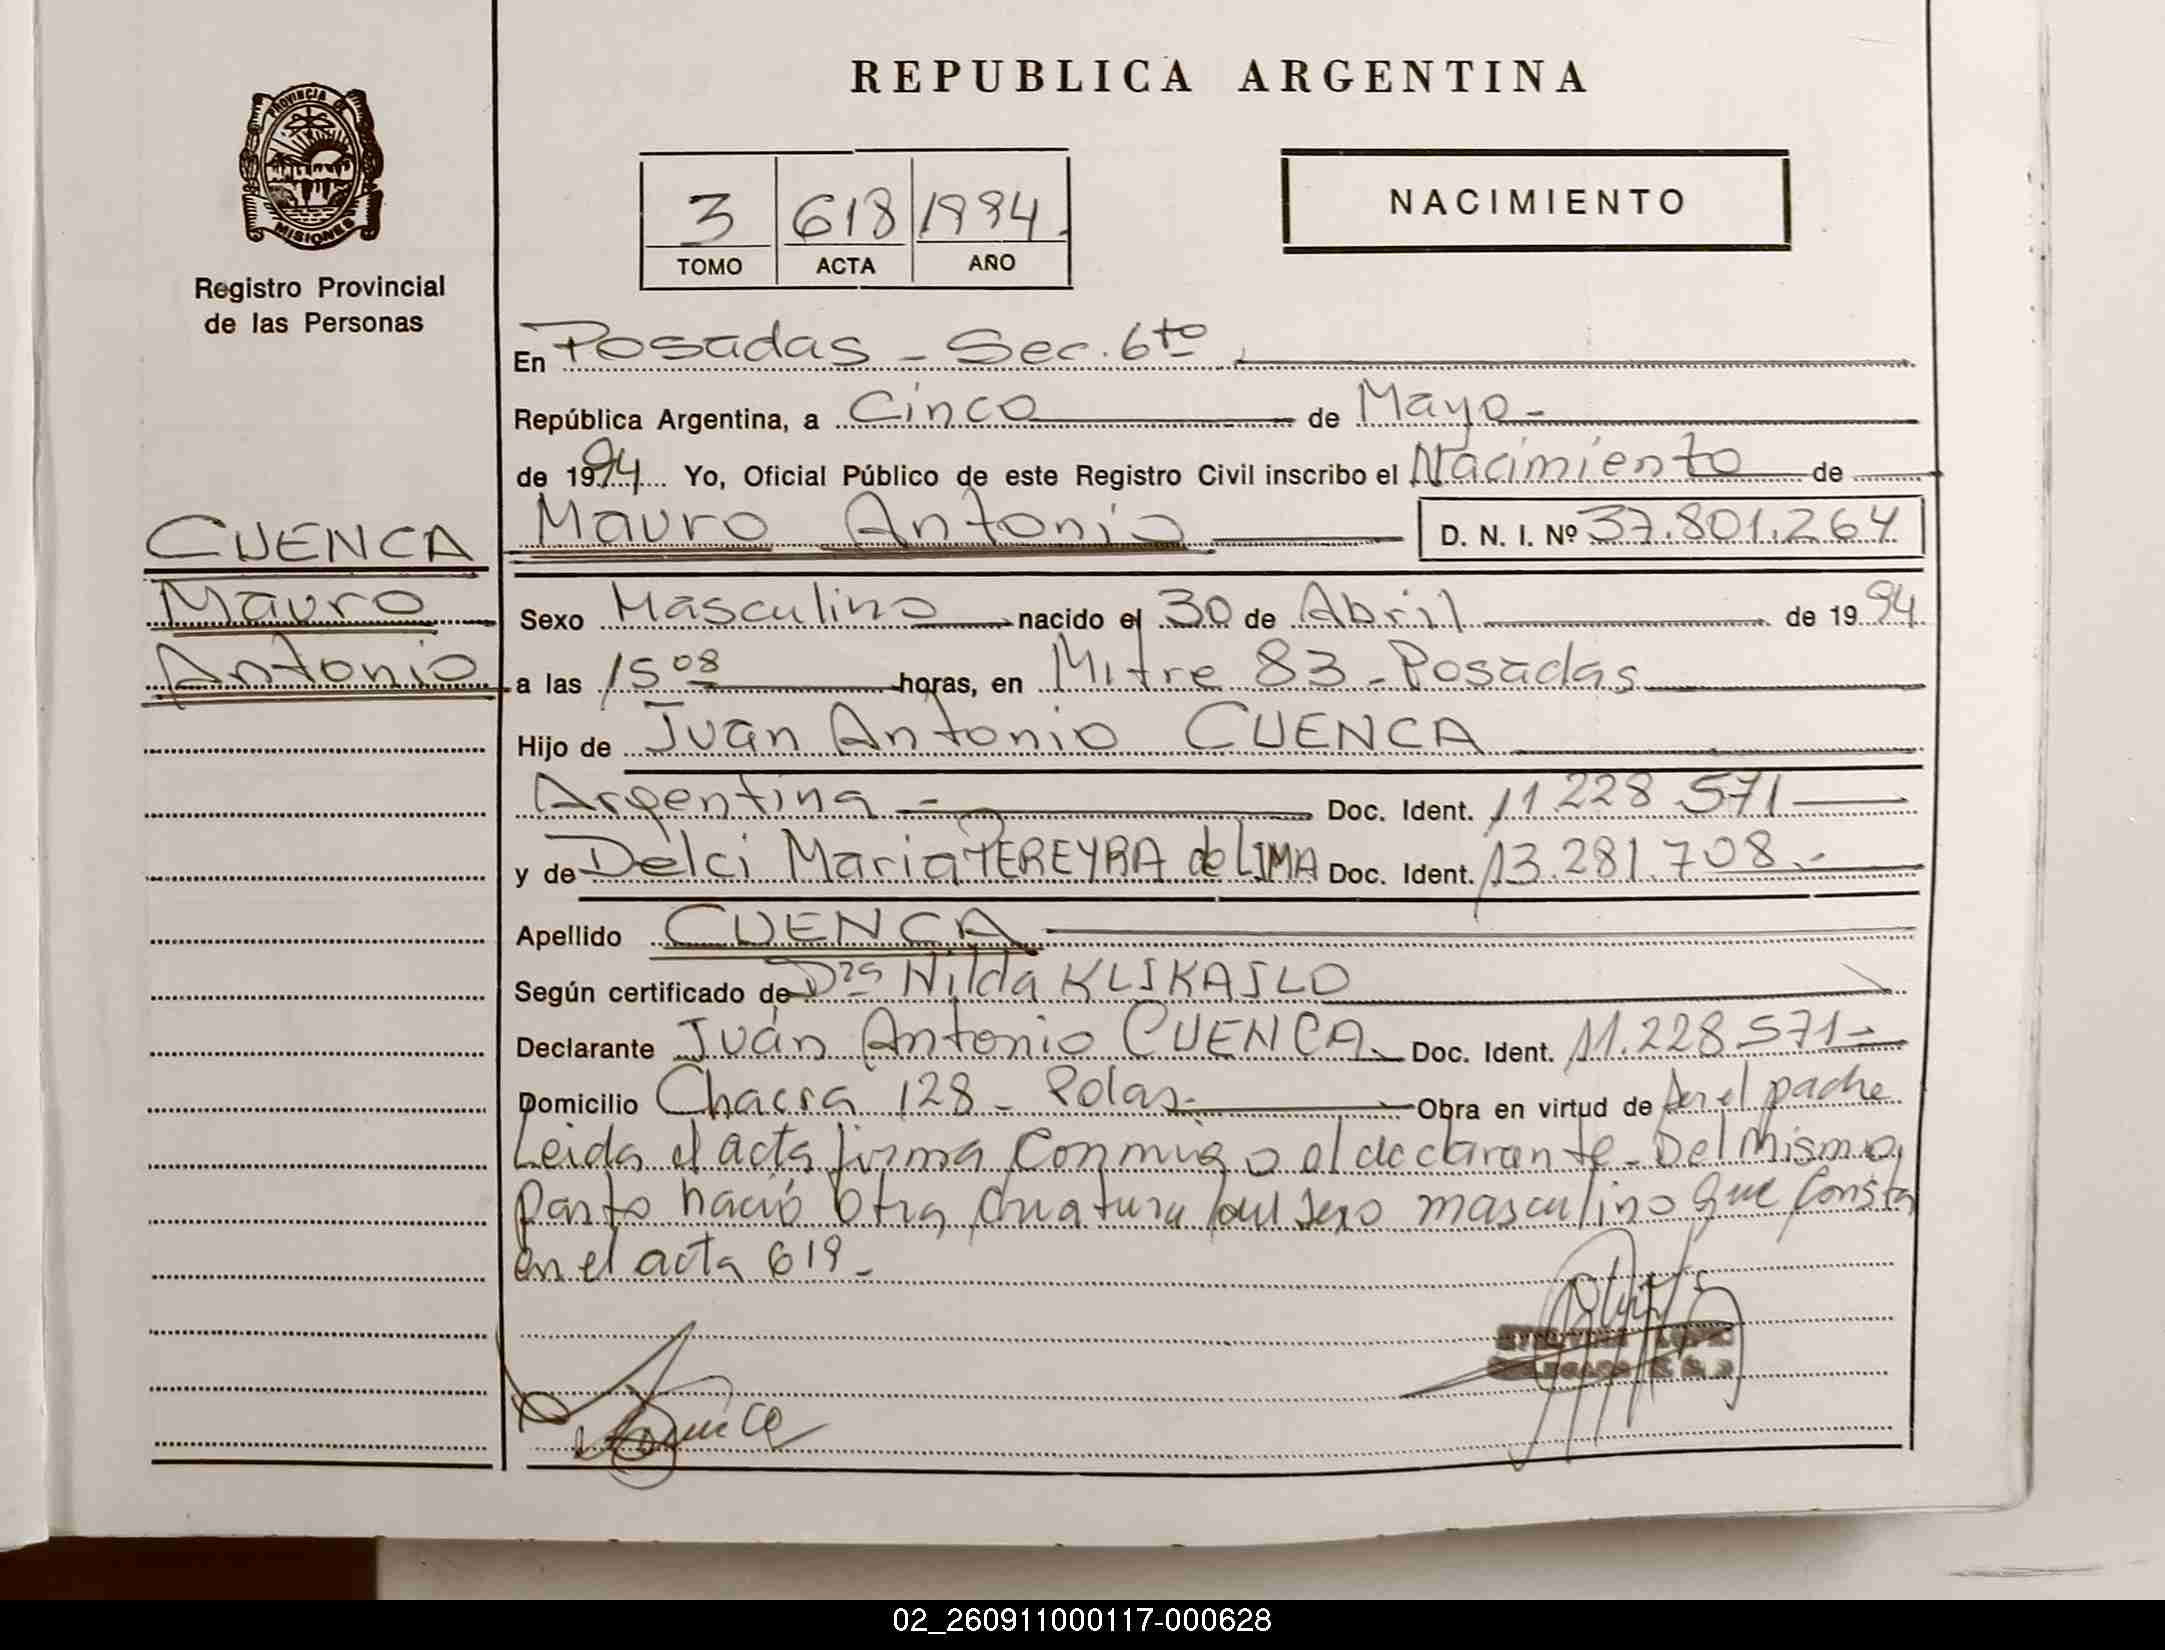 REPUBLICA ARGENTINA
PROVINCIA DE
MISIONES
Registro Provincial
de las Personas
3 618 1994
TOMO ACTA AÑO
NACIMIENTO
En Posadas - Sec. 6to
República Argentina, a Cinco de Mayo -
de 1994 Yo, Oficial Público de este Registro Civil inscribo el Nacimiento de
CUENCA
Mauro
Antonio
Mauro Antonio D. N. I. Nº 37.801.264
Sexo Masculino nacido el 30 de Abril de 1994
a las 15 08 horas, en Mitre 83 - Posadas
Hijo de Juan Antonio CUENCA
Argentina - Doc. Ident. 11.228.571
y de Delci Maria PEREYRA de LIMA Doc. Ident. 13.281.708.-
Apellido CUENCA
Según certificado de Dra Hilda
Declarante Juan Antonio CUENCA. Doc. Ident. 11.228.571-
Domicilio Chacra 128 - Obra en virtud de ser el padre
Leida el acta firma conmigo el declarante - Del mismo
parto nació otra criatura del sexo masculino que consta
en el acta 619 -
02_260911000117-000628